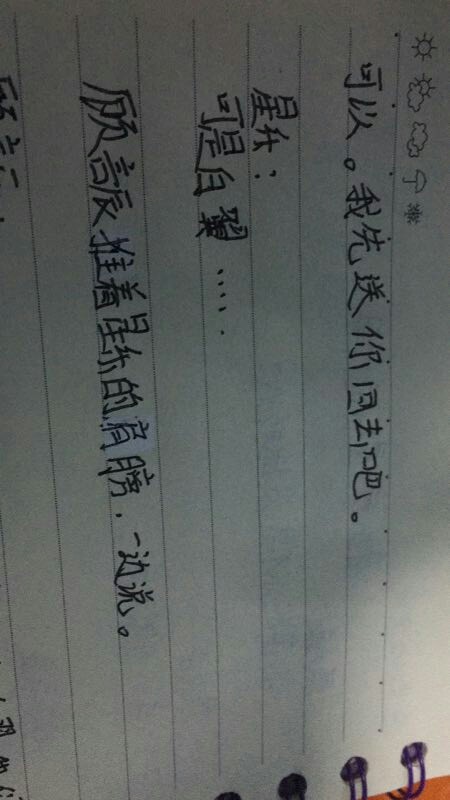 可以。我先送你回去吧。
星尔：
可是白翼 .....
顾言辰推着星尔的肩膀，一边说。
顾言